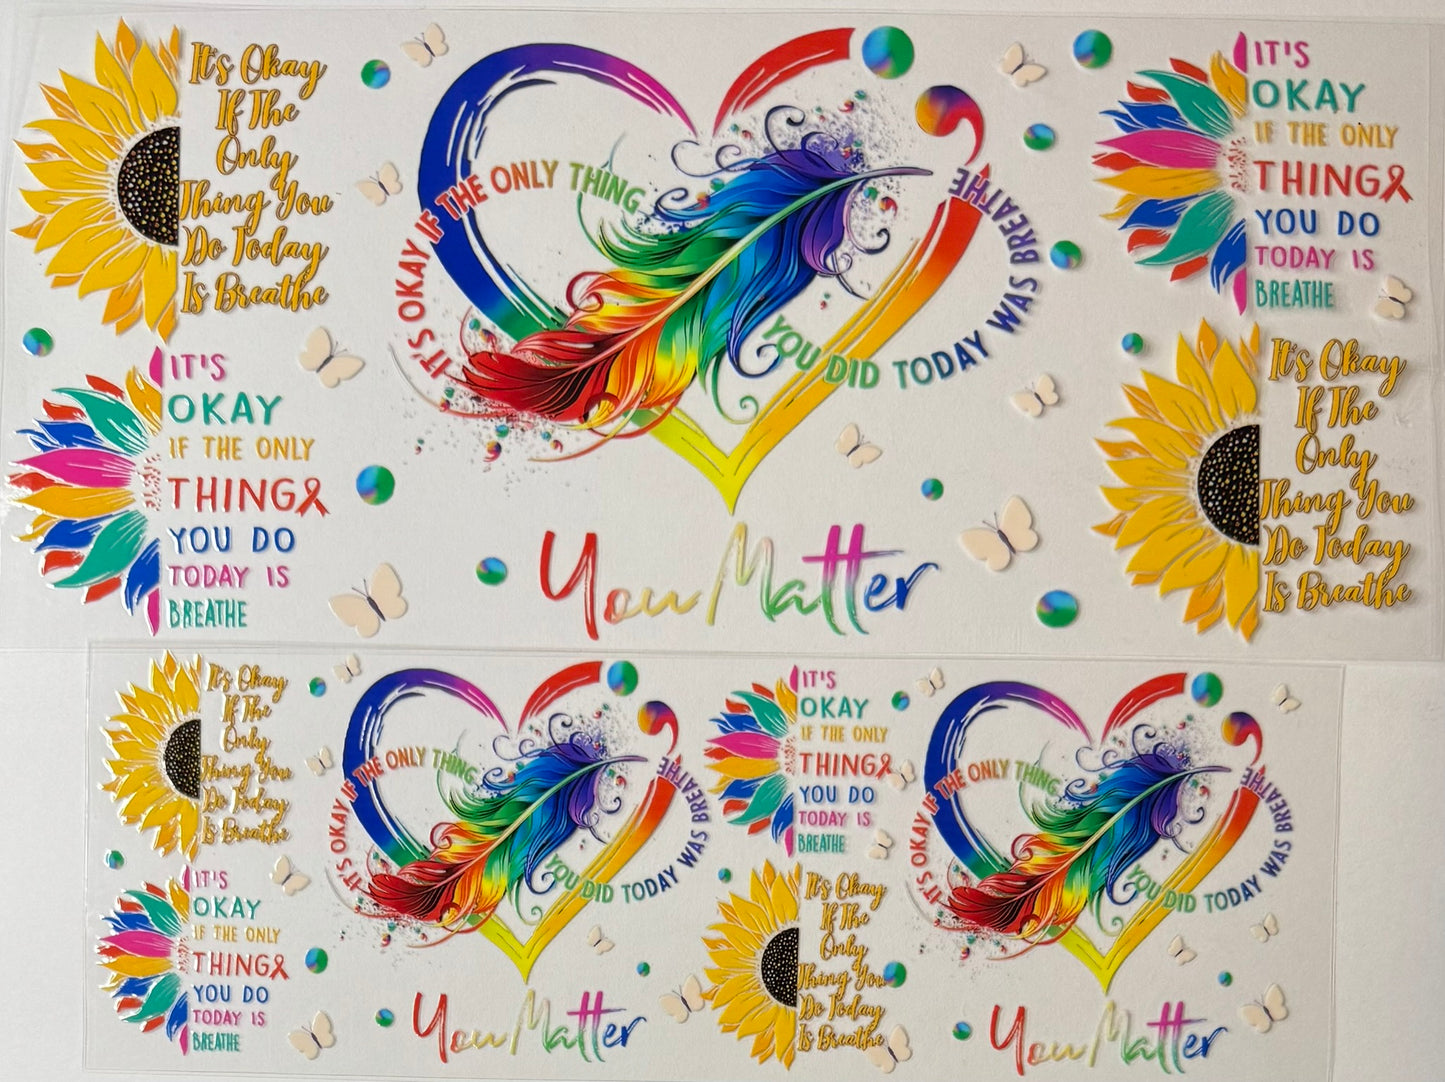 It's Okay
If The
Only
Thing You
Do Today
Is Breathe
IT'S OKAY IF THE ONLY THING
YOU DID TODAY WAS BREATHE
You Matter
IT'S
OKAY
IF THE ONLY
THING
YOU DO
TODAY IS
BREATHE
IT'S
OKAY
IF THE ONLY
THING
YOU DO
TODAY IS
BREATHE
It's Okay
If The
Only
Thing You
Do Today
Is Breathe
It's Okay
If The
Only
Thing You
Do Today
Is Breathe
IT'S OKAY IF THE ONLY THING
YOU DID TODAY WAS BREATHE
You Matter
IT'S
OKAY
IF THE ONLY
THING
YOU DO
TODAY IS
BREATHE
IT'S OKAY IF THE ONLY THING
YOU DID TODAY WAS BREATHE
You Matter
IT'S
OKAY
IF THE ONLY
THING
YOU DO
TODAY IS
BREATHE
It's Okay
If The
Only
Thing You
Do Today
Is Breathe